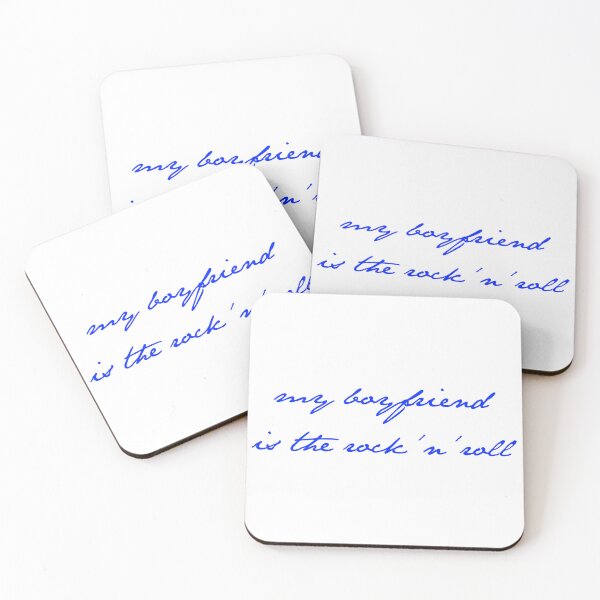 my boyfriend
'n'
my boyfriend
is the rock 'n' roll
my boyfriend
is the rock 'n' roll
my boyfriend
is the rock 'n' roll